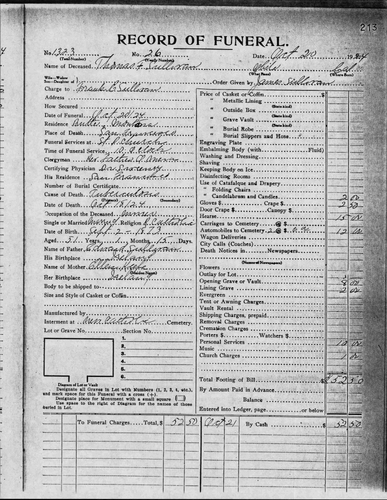 213
RECORD OF FUNERAL.
No. 1323 No. 26 Oct 20 1924
(Total Number) (Yearly Number)
Name of Deceased Thomas F Sullivan
Order Given by James Sullivan
Charge to Frank D Sullivan
Address
How Secured
Date of Funeral Oct 20/24
Residence Butte, Montana
Place of Death San Francisco
Funeral Services at St P Church
Time of Funeral Service 10 O'Clock
Clergyman Rev Father
Certifying Physician Dr
His Residence San Francisco
Number of Burial Certificate
Cause of Death Tuberculosis
Date of Death Oct 18/24
Occupation of the Deceased
Single or Married Religion Catholic
Date of Birth Sept 2 1873
Aged 51 Years Months 15 Days
Name of Father Sullivan
His Birthplace Ireland
Name of Mother Ellen
Her Birthplace Ireland
Body to be shipped to
Size and Style of Casket or Coffin
Manufactured by
Interment at New Catholic Cemetery.
Lot or Grave No. Section No.
Diagram of Lot or Vault
Designate all Graves in Lot with Numbers (1, 2, 3, 4, etc.)
and mark space for this Funeral with a cross (+)
Designate place for Monument with a small square
Use space to right of Diagram for the names of those
buried in Lot.
Price of Casket or Coffin
" Metallic Lining
" Outside Box
" Grave Vault
" Burial Robe
" Burial Slippers and Hose
Engraving Plate
Embalming Body (with Fluid)
Washing and Dressing
Shaving
Keeping Body on Ice
Disinfecting Rooms
Use of Catafalque and Drapery
" Folding Chairs
" Candelabrum and Candles 2 00
Gloves Crape 2 50
Door Crape Canopy
Hearse 15 00
Carriages to Cemetery @
Automobiles to Cemetery 2 @ 6.00 12 00
Wagon Deliveries
City Calls (Coaches)
Death Notices in Newspapers
(Names of Newspapers)
Flowers
Outlay for Lot
Opening Grave or Vault 8 00
Lining Grave 2 00
Evergreen
Tent or Awning Charges
Vault Rental
Shipping Charges, prepaid
Removal Charges
Cremation Charges
Porters Watchers
Personal Services 10 00
Music
Church Charges 1 00
Total Footing of Bill 52 50
By Amount Paid in Advance
Balance
Entered into Ledger, page or below.
To Funeral Charges 52 50 Oct 21 By Cash 52 50